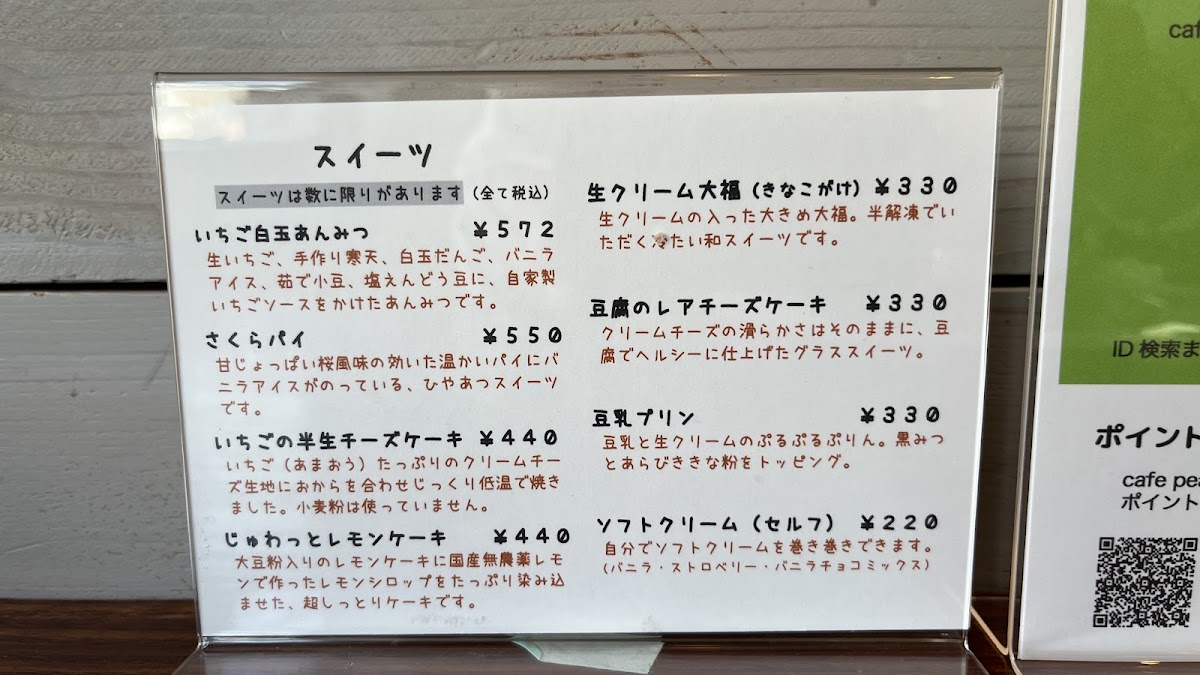 スイーツ
スイーツは数に限りがあります (全て税込)
いちご白玉あんみつ ¥572
生いちご、手作り寒天、白玉だんご、バニラ
アイス、茹で小豆、塩えんどう豆に、自家製
いちごソースをかけたあんみつです。
さくらパイ ¥550
甘じょっぱい桜風味の効いた温かいパイにバ
ニラアイスがのっている、ひやあつスイーツ
です。
いちごの半生チーズケーキ ¥440
いちご(あまおう)たっぷりのクリームチー
ズ生地におからを合わせじっくり低温で焼き
ました。小麦粉は使っていません。
じゅわっとレモンケーキ ¥440
大豆粉入りのレモンケーキに国産無農薬レモ
ンで作ったレモンシロップをたっぷり染み込
ませた、超しっとりケーキです。
生クリーム大福(きなこがけ) ¥330
生クリームの入った大きめ大福。半解凍でい
ただく冷たい和スイーツです。
豆腐のレアチーズケーキ ¥330
クリームチーズの滑らかさはそのままに、豆
腐でヘルシーに仕上げたグラススイーツ。
豆乳プリン ¥330
豆乳と生クリームのぷるぷるぷりん。黒みつ
とあらびききな粉をトッピング。
ソフトクリーム(セルフ) ¥220
自分でソフトクリームを巻き巻きできます。
(バニラ・ストロベリー・バニラチョコミックス)
caf
ID 検索ま
ポイント
cafe pea
ポイント